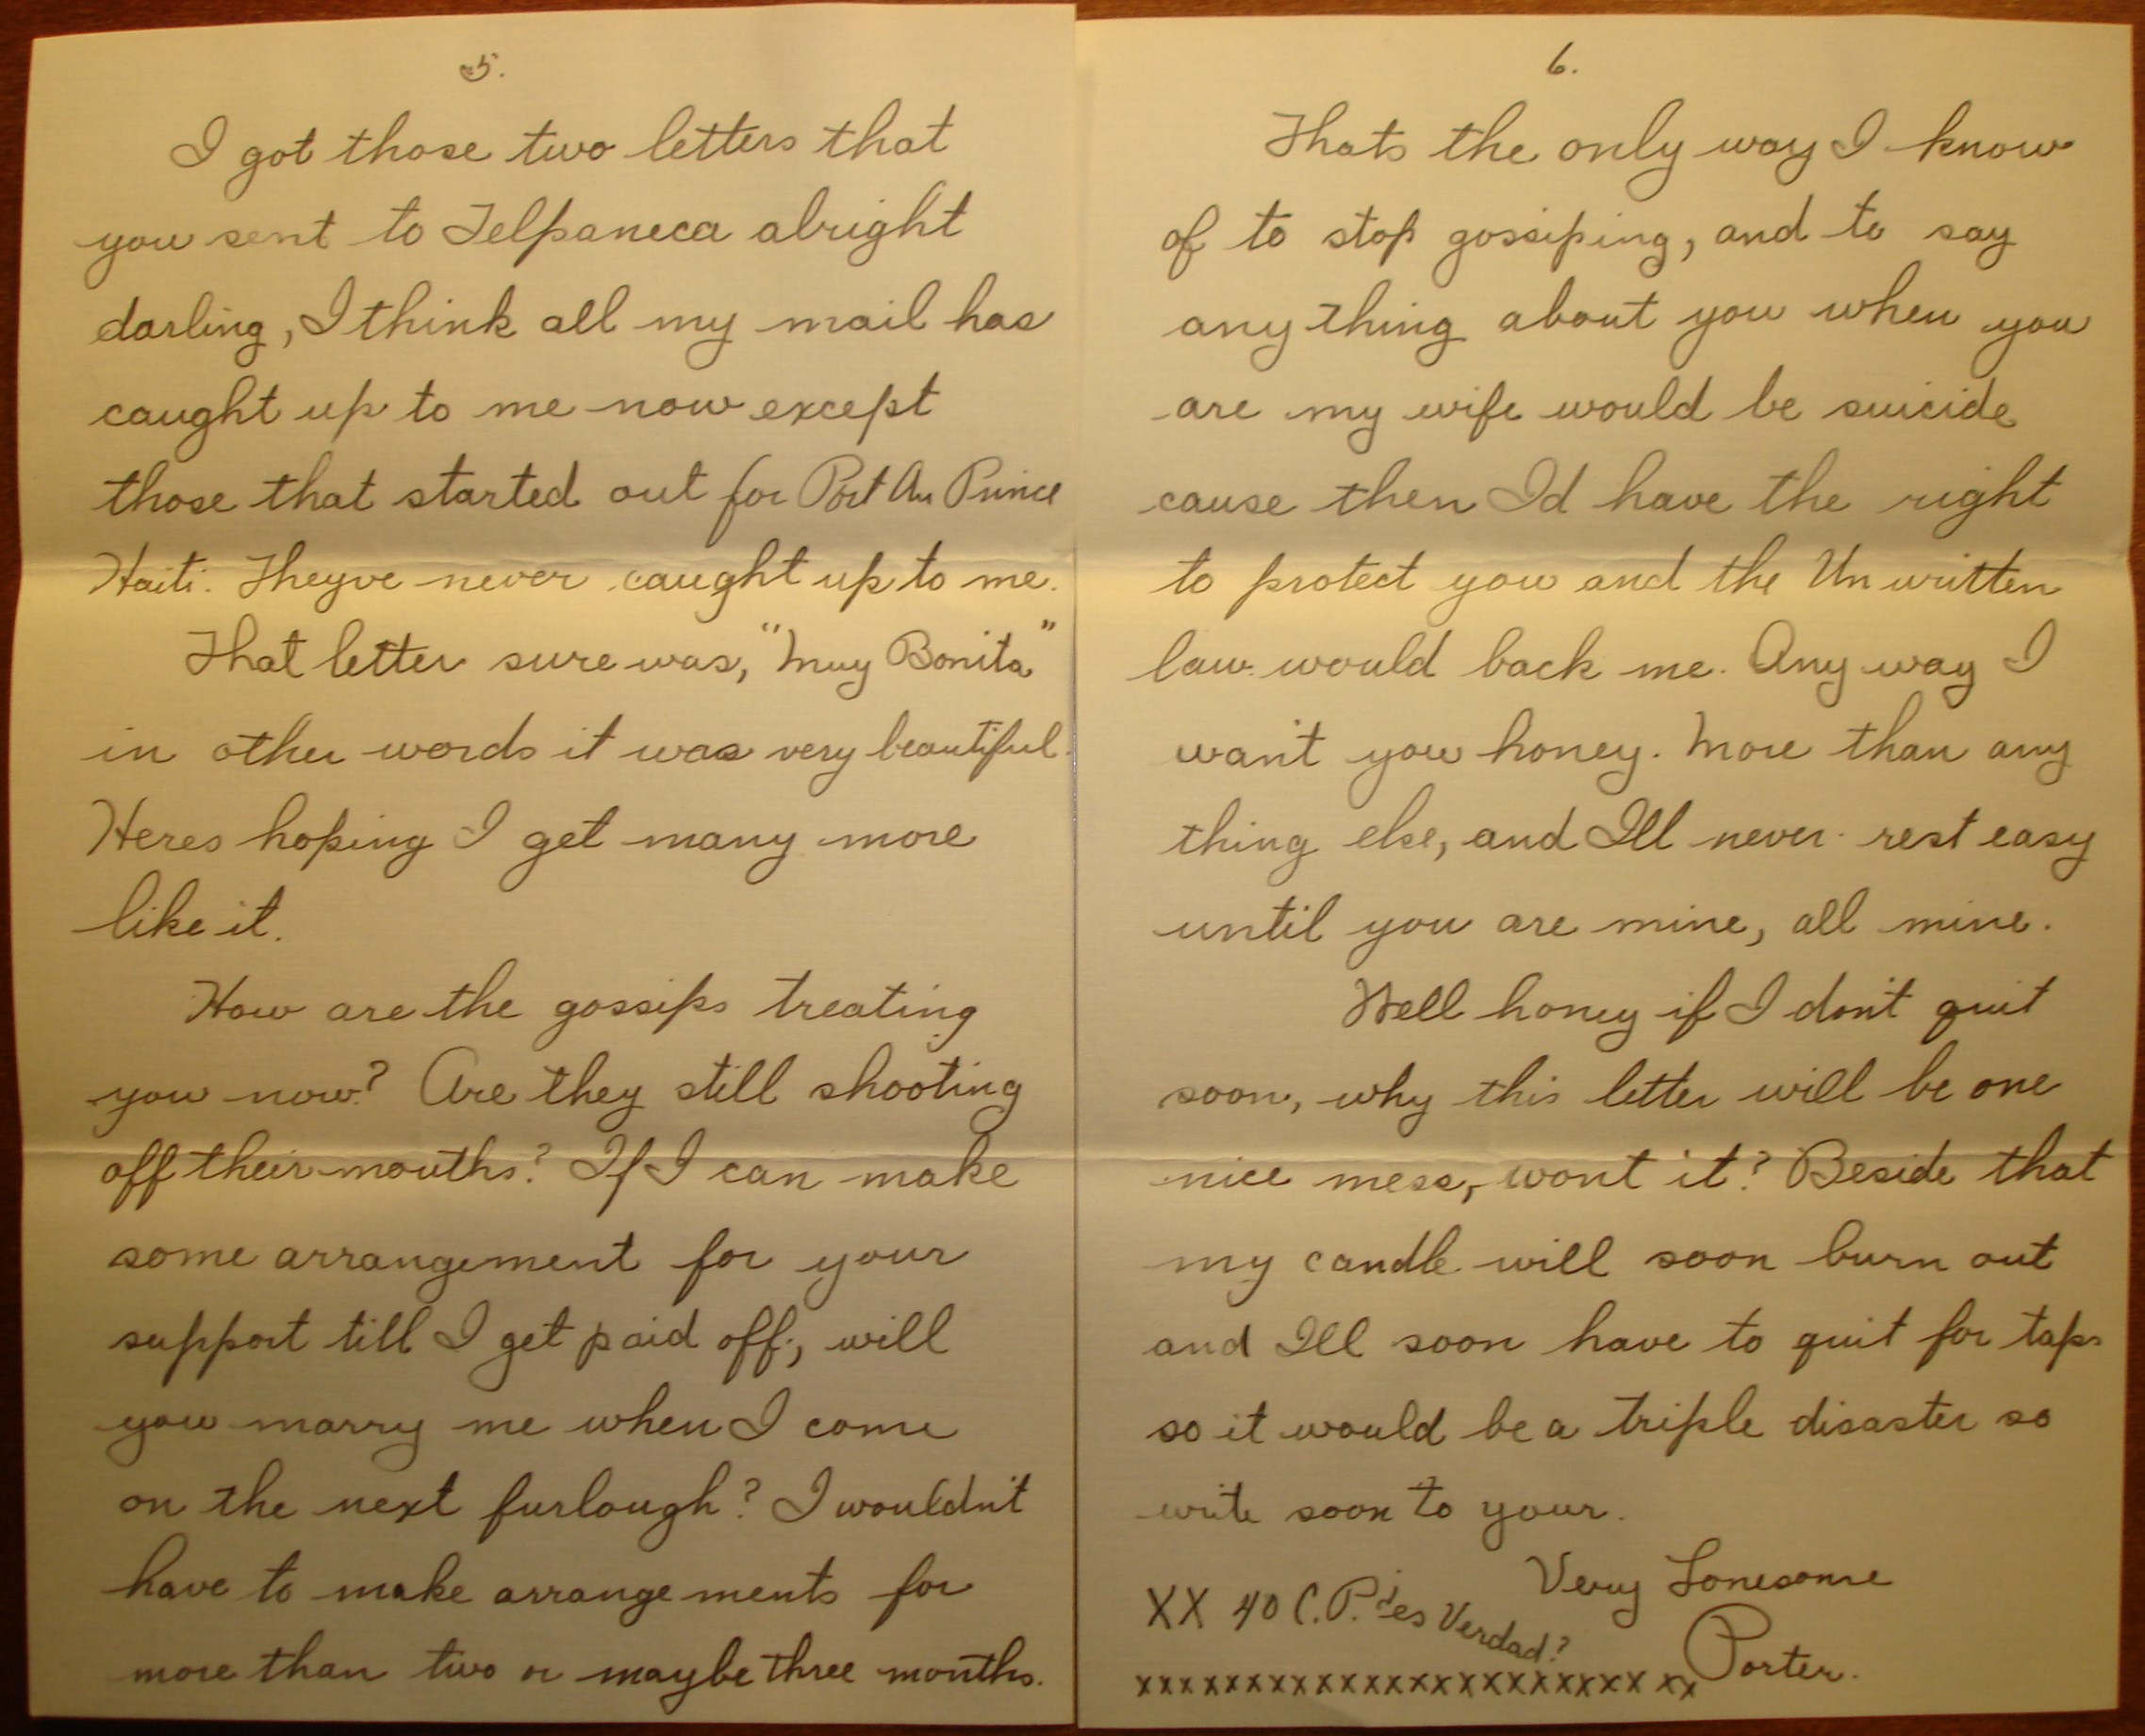 5.
I got those two letters that
you sent to Telpaneca alright
darling, I think all my mail has
caught up to me now except
those that started out for Port Au Prince
Haiti. Theyve never caught up to me.
That letter sure was, "Muy Bonita"
in other words it was very beautiful.
Heres hoping I get many more
like it.
How are the gossips treating
you now? Are they still shooting
off their mouths? If I can make
some arrangement for your
support till I get paid off, will
you marry me when I come
on the next furlough? I wouldn't
have to make arrangements for
more than two or maybe three months.
6.
Thats the only way I know
of to stop gossiping, and to say
any thing about you when you
are my wife would be suicide
cause then Id have the right
to protect you and the Un written
law would back me. Any way I
want you honey. More than any
thing else, and Ill never rest easy
until you are mine, all mine.
Well honey if I don't quit
soon, why this letter will be one
nice mess, wont it? Beside that
my candle will soon burn out
and Ill soon have to quit for taps
so it would be a triple disaster so
write soon to your.
Very Lonesome
Porter.
XX 40 C.P. ¿es Verdad?
xxxxxxxxxxxxxxxxxxxxxxxxx